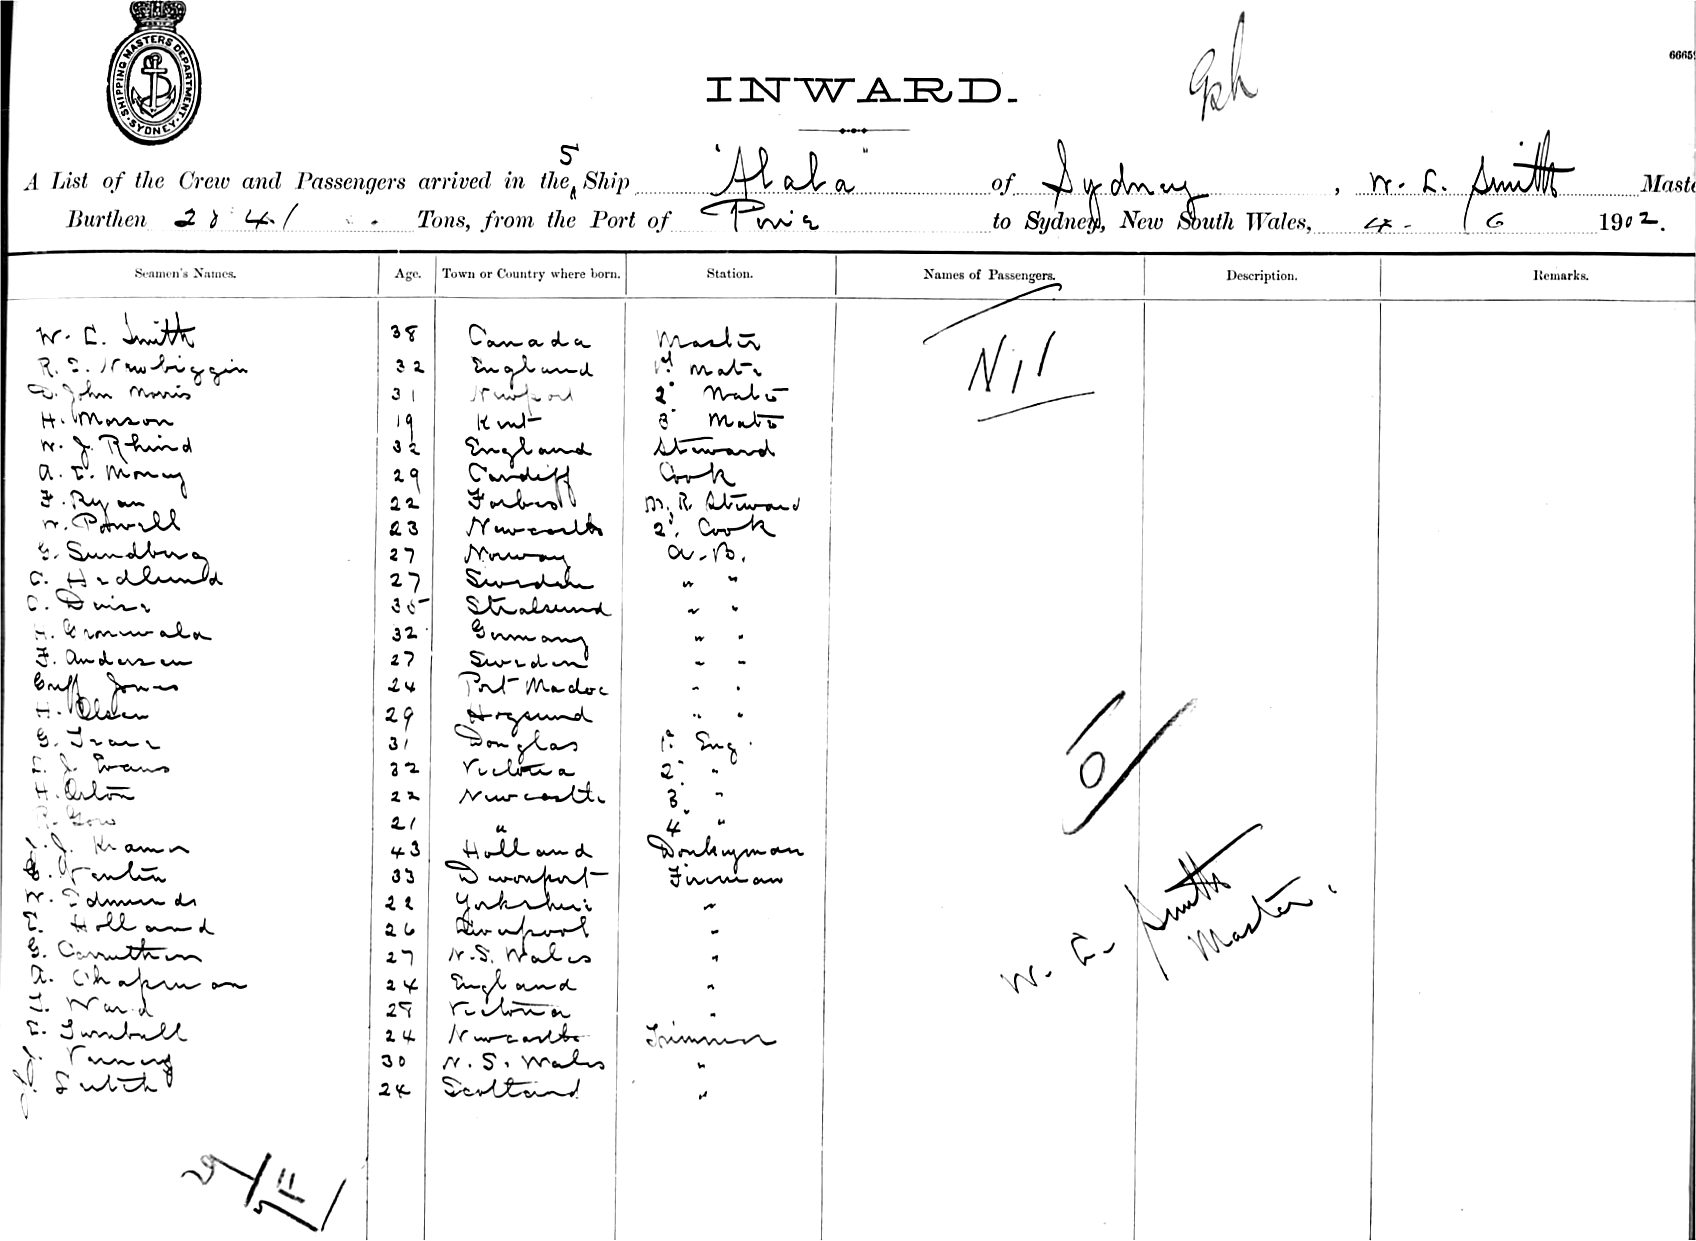 SHIPPING MASTERS DEPARTMENT. SYDNEY.
6665
INWARD.
A List of the Crew and Passengers arrived in the S Ship "Alaba" of Sydney, W. E. Smith Maste
Burthen 2841 Tons, from the Port of Pirie to Sydney, New South Wales, 4. / 6 1902.
Seamen's Names. Age. Town or Country where born. Station. Names of Passengers. Description. Remarks.
W. E. Smith 38 Canada Master
R. E. Newbiggin 32 England 1st Mate Nil
D. John Norris 31 Newport 2d Mate
H. Mason 19 Kent 3d Mate
W. J. Rhind 32 England Steward
A. E. Money 29 Cardiff Cook
F. Ryan 22 Forbes M. R. Steward
W. Powell 23 Newcastle 2d Cook
G. Sundberg 27 Norway A. B.
C. Hedlund 27 Sweden " "
C. 35 Stralsund " "
H. 32 Germany " "
F. Andersen 27 Sweden " "
Griff Jones 24 Port Madoc " "
H. Olsen 29 " "
G. 31 Douglas 1st Eng.
J. Evans 32 Victoria 2d "
H. Orton 22 Newcastle 3d "
R. Gow 21 " 4 "
J. Kramer 43 Holland Donkeyman
33 Devonport Fireman
W. Edmunds 22 Yorkshire "
E. Holland 26 Liverpool "
G. Carruthers 27 N. S. Wales "
A. Chapman 24 England "
T. Ward 29 Victoria "
E. Turnbull 24 Newcastle Trimmer
30 N. S. Wales "
24 Scotland "
O
W. E. Smith
Master.
29